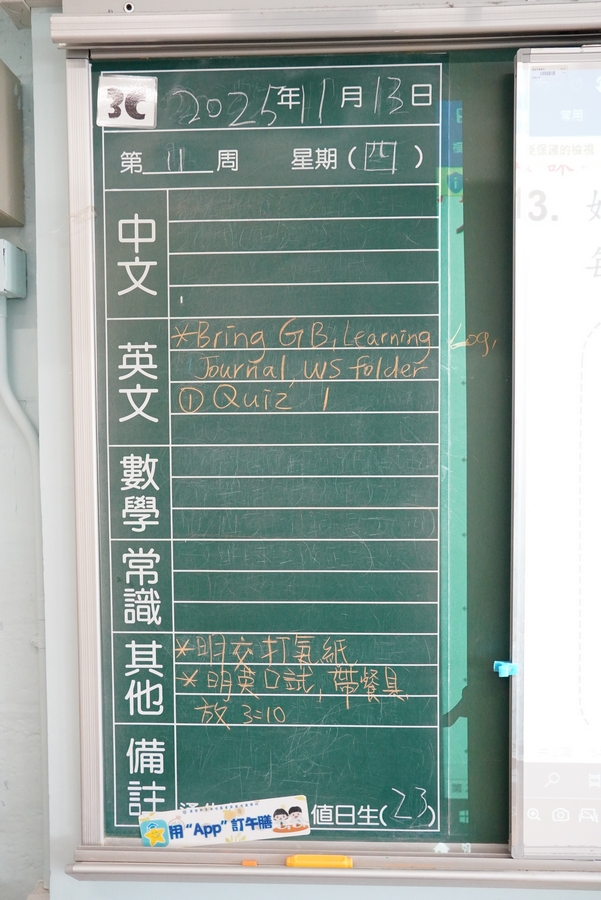 3C 2025年11月13日
第 11 周 星期(四)
中文
英文
*Bring GB, Learning Log,
Journal, WS folder
① Quiz 1
數學
常識
其他
*明交打氣紙
*明英口試,帶餐具
放 3:10
備註
值日生(23)
用“App”訂午膳
13.
常用